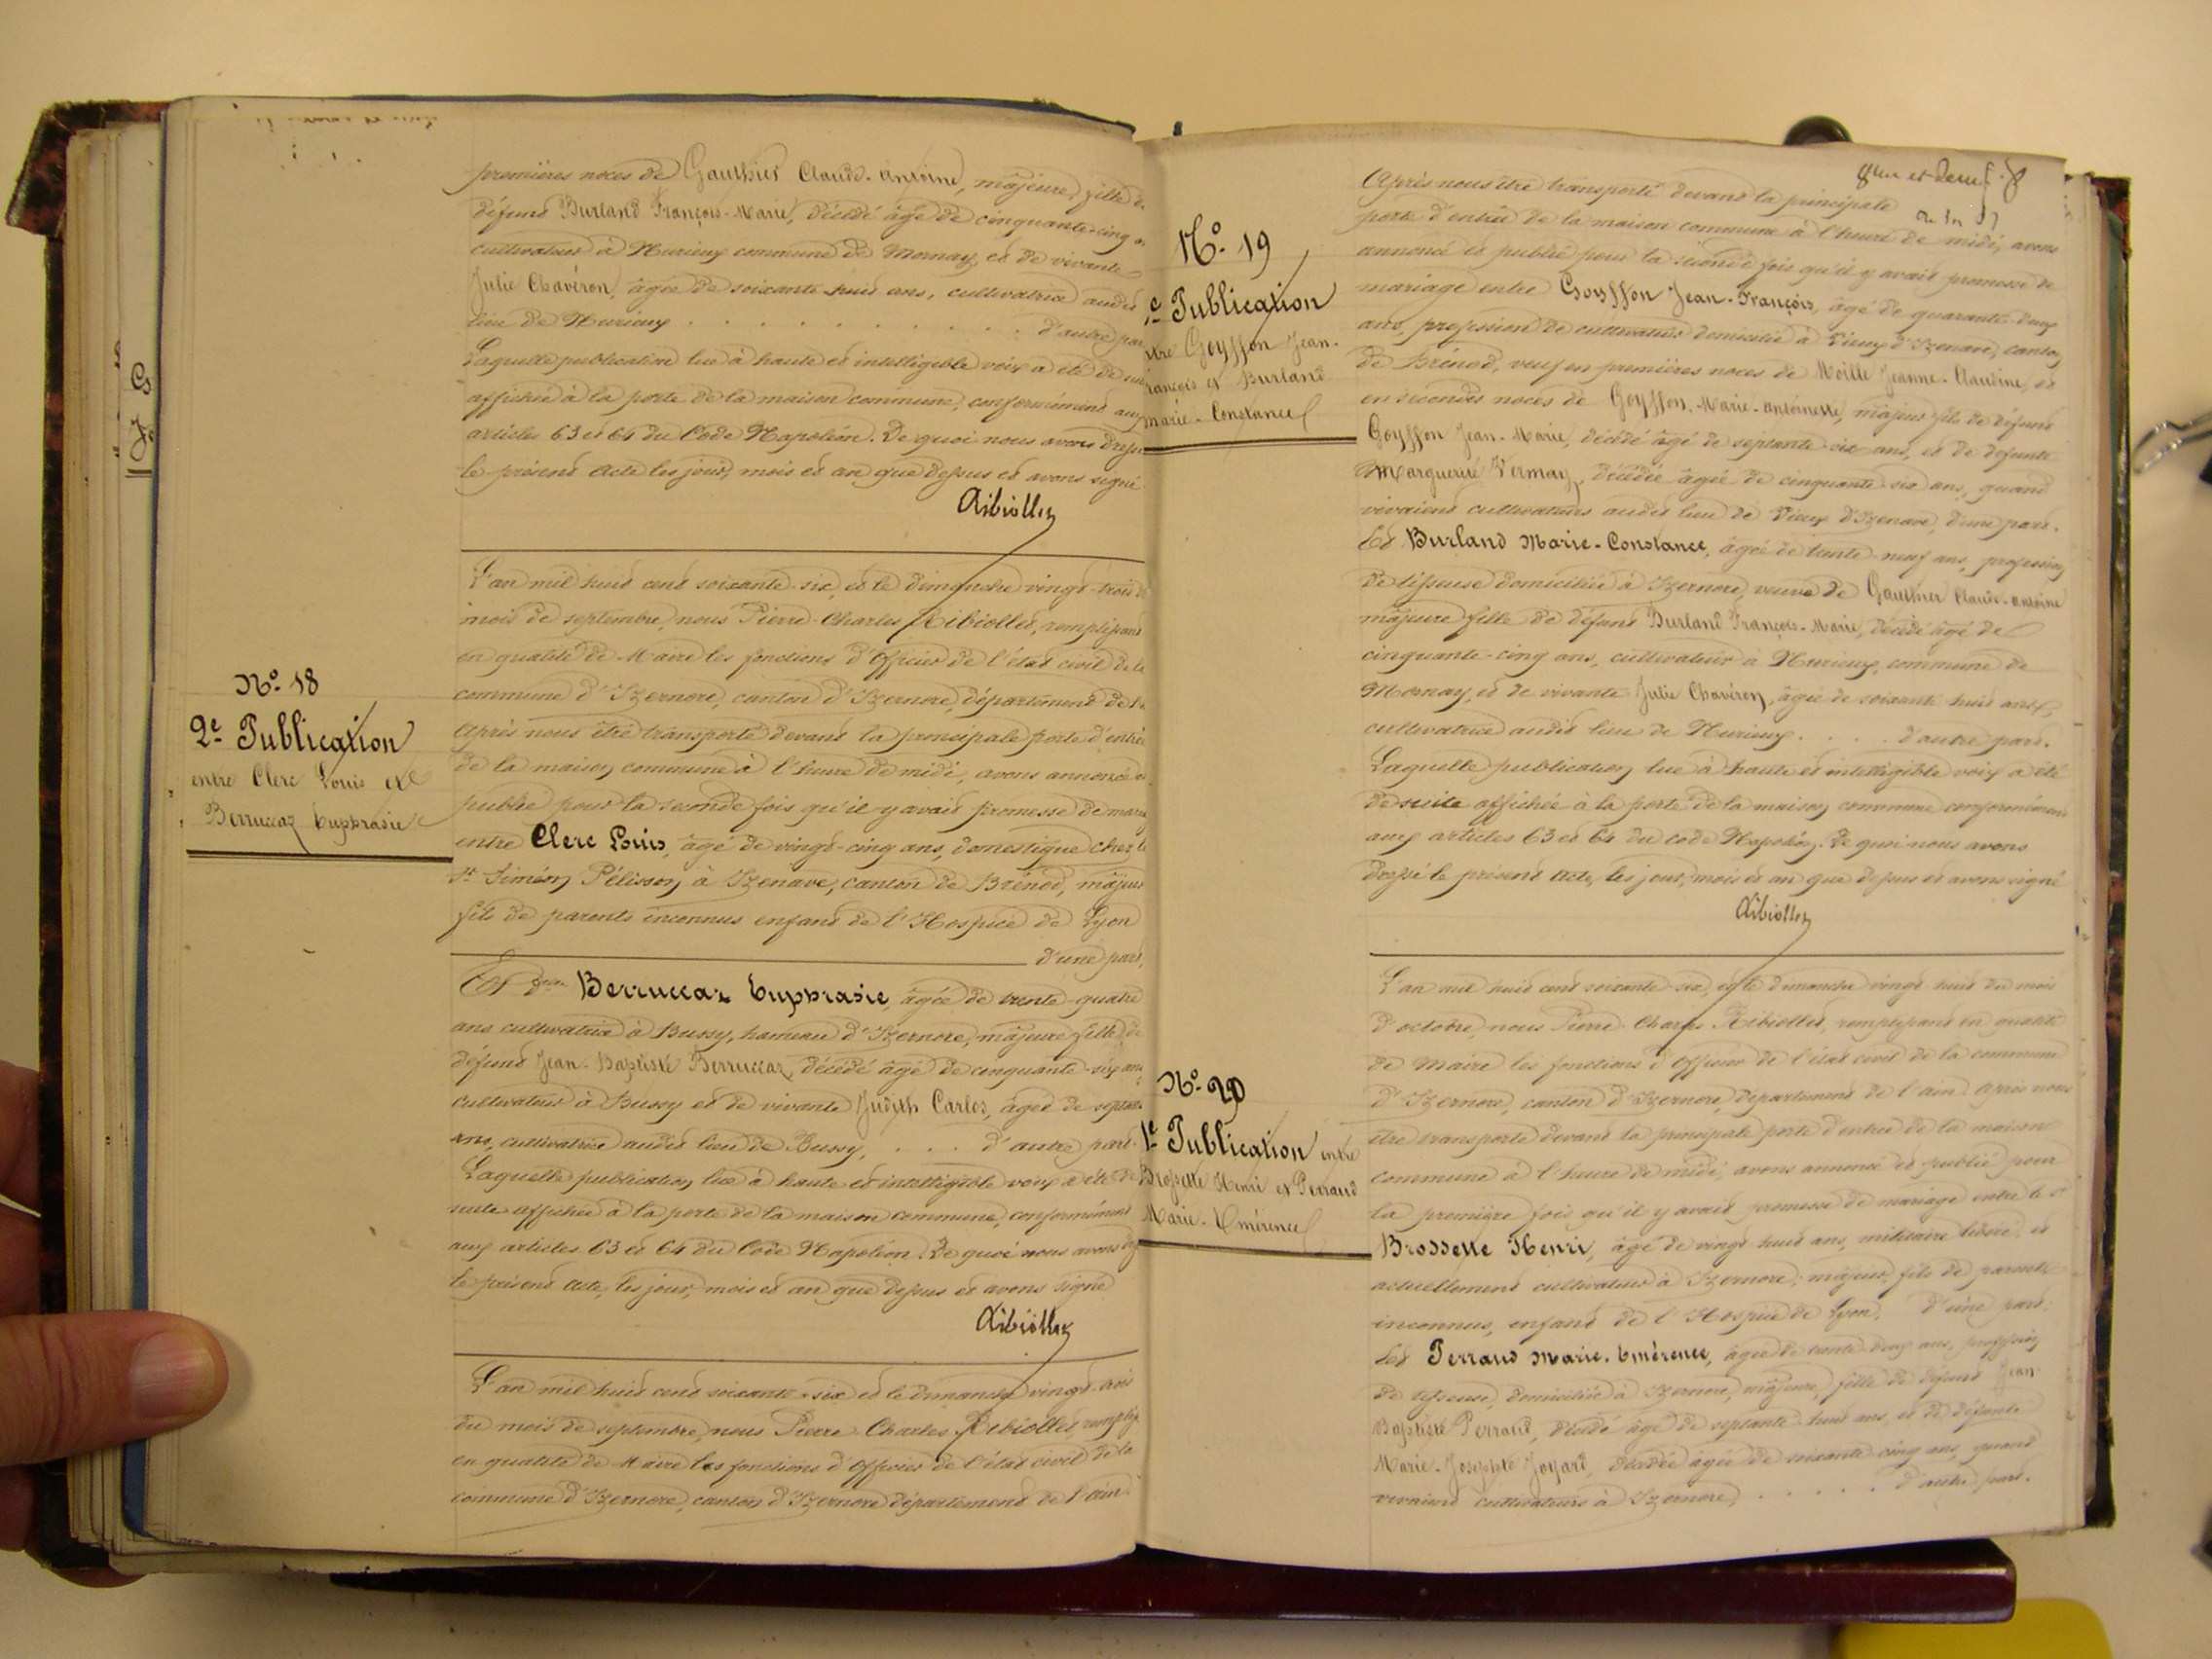 premières noces de Gauthier Claude-Antoine, majeure, fille de
défunt Burland François-Marie, décédé âgé de cinquante-cinq
cultivateur à Nurieux commune de Mornay, et de vivante
Julie Chavéron, âgée de soixante-huit ans, cultivatrice audit
lieu de Nurieux . . . . . . . . . . . . d'autre par
Laquelle publication lue à haute et intelligible voix a été de
affichée à la porte de la maison commune, conformément aux
articles 63 et 64 du Code Napoléon. De quoi nous avons dressé
le présent acte les jour, mois et an que dessus et avons signé
Ribiollet
N° 18
2e Publication
entre Clerc Louis et
Berruccaz Euphrasie
L'an mil huit cent soixante-six, et le dimanche vingt-trois
mois de septembre, nous Pierre-Charles Ribiollet, remplissant
en qualité de Maire les fonctions d'officier de l'état civil de la
commune d'Izernore, canton d'Izernore, département de l'
Après nous être transporté devant la principale porte d'entrée
de la maison commune à l'heure de midi, avons annoncé et
publié pour la seconde fois qu'il y avait promesse de maria
entre Clerc Louis, âgé de vingt-cinq ans, domestique chez le
Sr Siméon Pélisson à Izenave, canton de Brénod, majeur
fils de parents inconnus enfant de l'Hospice de Lyon
d'une part,
Et Berruccaz Euphrasie, âgée de trente-quatre
ans cultivatrice à Bussy, hameau d'Izernore, majeure fille de
défunt Jean-Baptiste Berruccaz, décédé âgé de cinquante-six ans
cultivateur à Bussy et de vivante Judith Carlos, âgée de septan
ans, cultivatrice audit lieu de Bussy, . . . d'autre part.
Laquelle publication lue à haute et intelligible voix a été de
suite affichée à la porte de la maison commune, conformément
aux articles 63 et 64 du Code Napoléon. De quoi nous avons
le présent acte, les jour, mois et an que dessus et avons signé
Ribiollet
L'an mil huit cent soixante-six et le dimanche vingt-trois
du mois de septembre, nous Pierre Charles Ribiollet, rempliss
en qualité de Maire les fonctions d'officier de l'état civil de la
commune d'Izernore, canton d'Izernore département de l'ain
N° 19
e Publication
ntre Goyffon Jean-
rançois et Burland
marie-Constance
Après nous être transporté devant la principale
porte d'entrée de la maison commune à l'heure de midi, avons
annoncé et publié pour la seconde fois qu'il y avait promesse de
mariage entre Goyffon Jean-François, âgé de quarante-deux
ans, profession de cultivateur domicilié à Vieux d'Izenave, canton
de Brénod, veuf en premières noces de Moille Jeanne-Claudine, et
en secondes noces de Goyffon Marie-Antoinette, majeur fils de défunt
Goyffon Jean-Marie, décédé âgé de septante-six ans, et de défunte
Marguerite Vermay, décédée âgée de cinquante-six ans, quand
vivaient cultivateurs audit lieu de Vieux d'Izenave, d'une part.
Et Burland Marie-Constance, âgée de trente-neuf ans, profession
de tisseuse domiciliée à Izernore, veuve de Gauthier Claude-Antoine
majeure fille de défunt Burland François-Marie, décédé âgé de
cinquante-cinq ans, cultivateur à Nurieux, commune de
Mornay, et de vivante Julie Chavéron, âgée de soixante huit ans,
cultivatrice audit lieu de Nurieux . . . . d'autre part.
Laquelle publication lue à haute et intelligible voix a été
de suite affichée à la porte de la maison commune conformément
aux articles 63 et 64 du Code Napoléon. De quoi nous avons
dressé le présent acte, les jour, mois et an que dessus et avons signé
Ribiollet
N° 20
1e Publication entre
Brossette Henri et Perraud
Marie-Emérence
L'an mil huit cent soixante-six, et le dimanche vingt-huit du mois
d'octobre, nous Pierre-Charles Ribiollet, remplissant en qualité
de Maire les fonctions d'officier de l'état civil de la commune
d'Izernore, canton d'Izernore, département de l'ain après nous
être transporté devant la principale porte d'entrée de la maison
commune à l'heure de midi, avons annoncé et publié pour
la première fois qu'il y avait promesse de mariage entre le Sr
Brossette Henri, âgé de vingt huit ans, militaire libéré, et
actuellement cultivateur à Izernore; majeur, fils de parents
inconnus, enfant de l'Hospice de Lyon, d'une part.
Et Perraud Marie-Emérence, âgée de trente-deux ans, profession
de tisseuse, domiciliée à Izernore, majeure, fille de défunt Jean
Baptiste Perraud, décédé âgé de septante-huit ans et de défunte
Marie-Josephte Joyard, décédée âgée de soixante-cinq ans, quand
vivaient cultivateurs à Izernore, . . . . . . d'autre part.